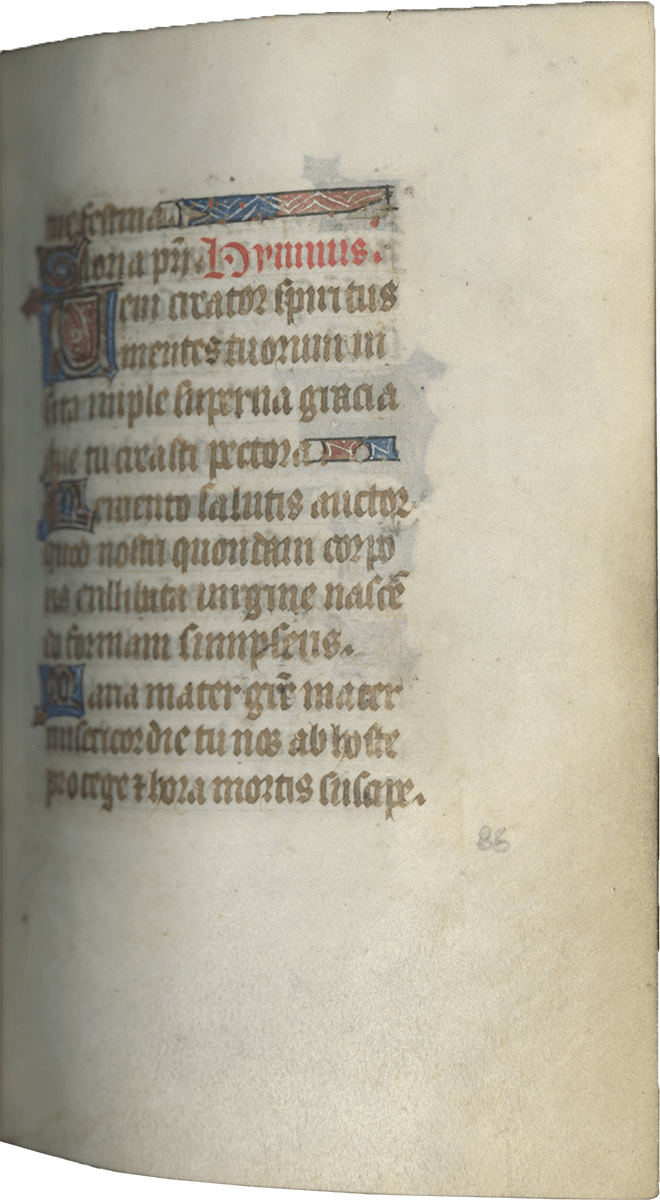 me festina
Gloria pr̄i. Hymnus.
Veni creator spiritus
mentes tuorum vi
sita imple superna gracia
que tu creasti pectora
Memento salutis auctor
quod nostri quondam corpo
ris ex illibata virgine nascē
do formam sumpseris.
Maria mater grē mater
misericordie tu nos ab hoste
protege ⁊ hora mortis suscipe.
88